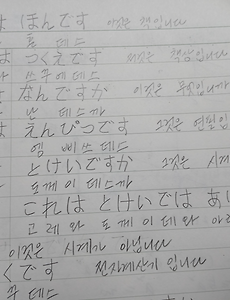 ほんです 이것은 책입니다
홍 데스
つくえです 저것은 책상입니다
쯔꾸에데스
なんですか 이것은 무엇입니까
난 데스까
えんぴつです 그것은 연필입
엠 삐쯔데스
とけいですか 그것은 시계
도께이데스까
これは とけいでは あ
고레와 도께이데와 아
이것은 시계가 아닙니다
くです 전자계산기입니다
꾸데스